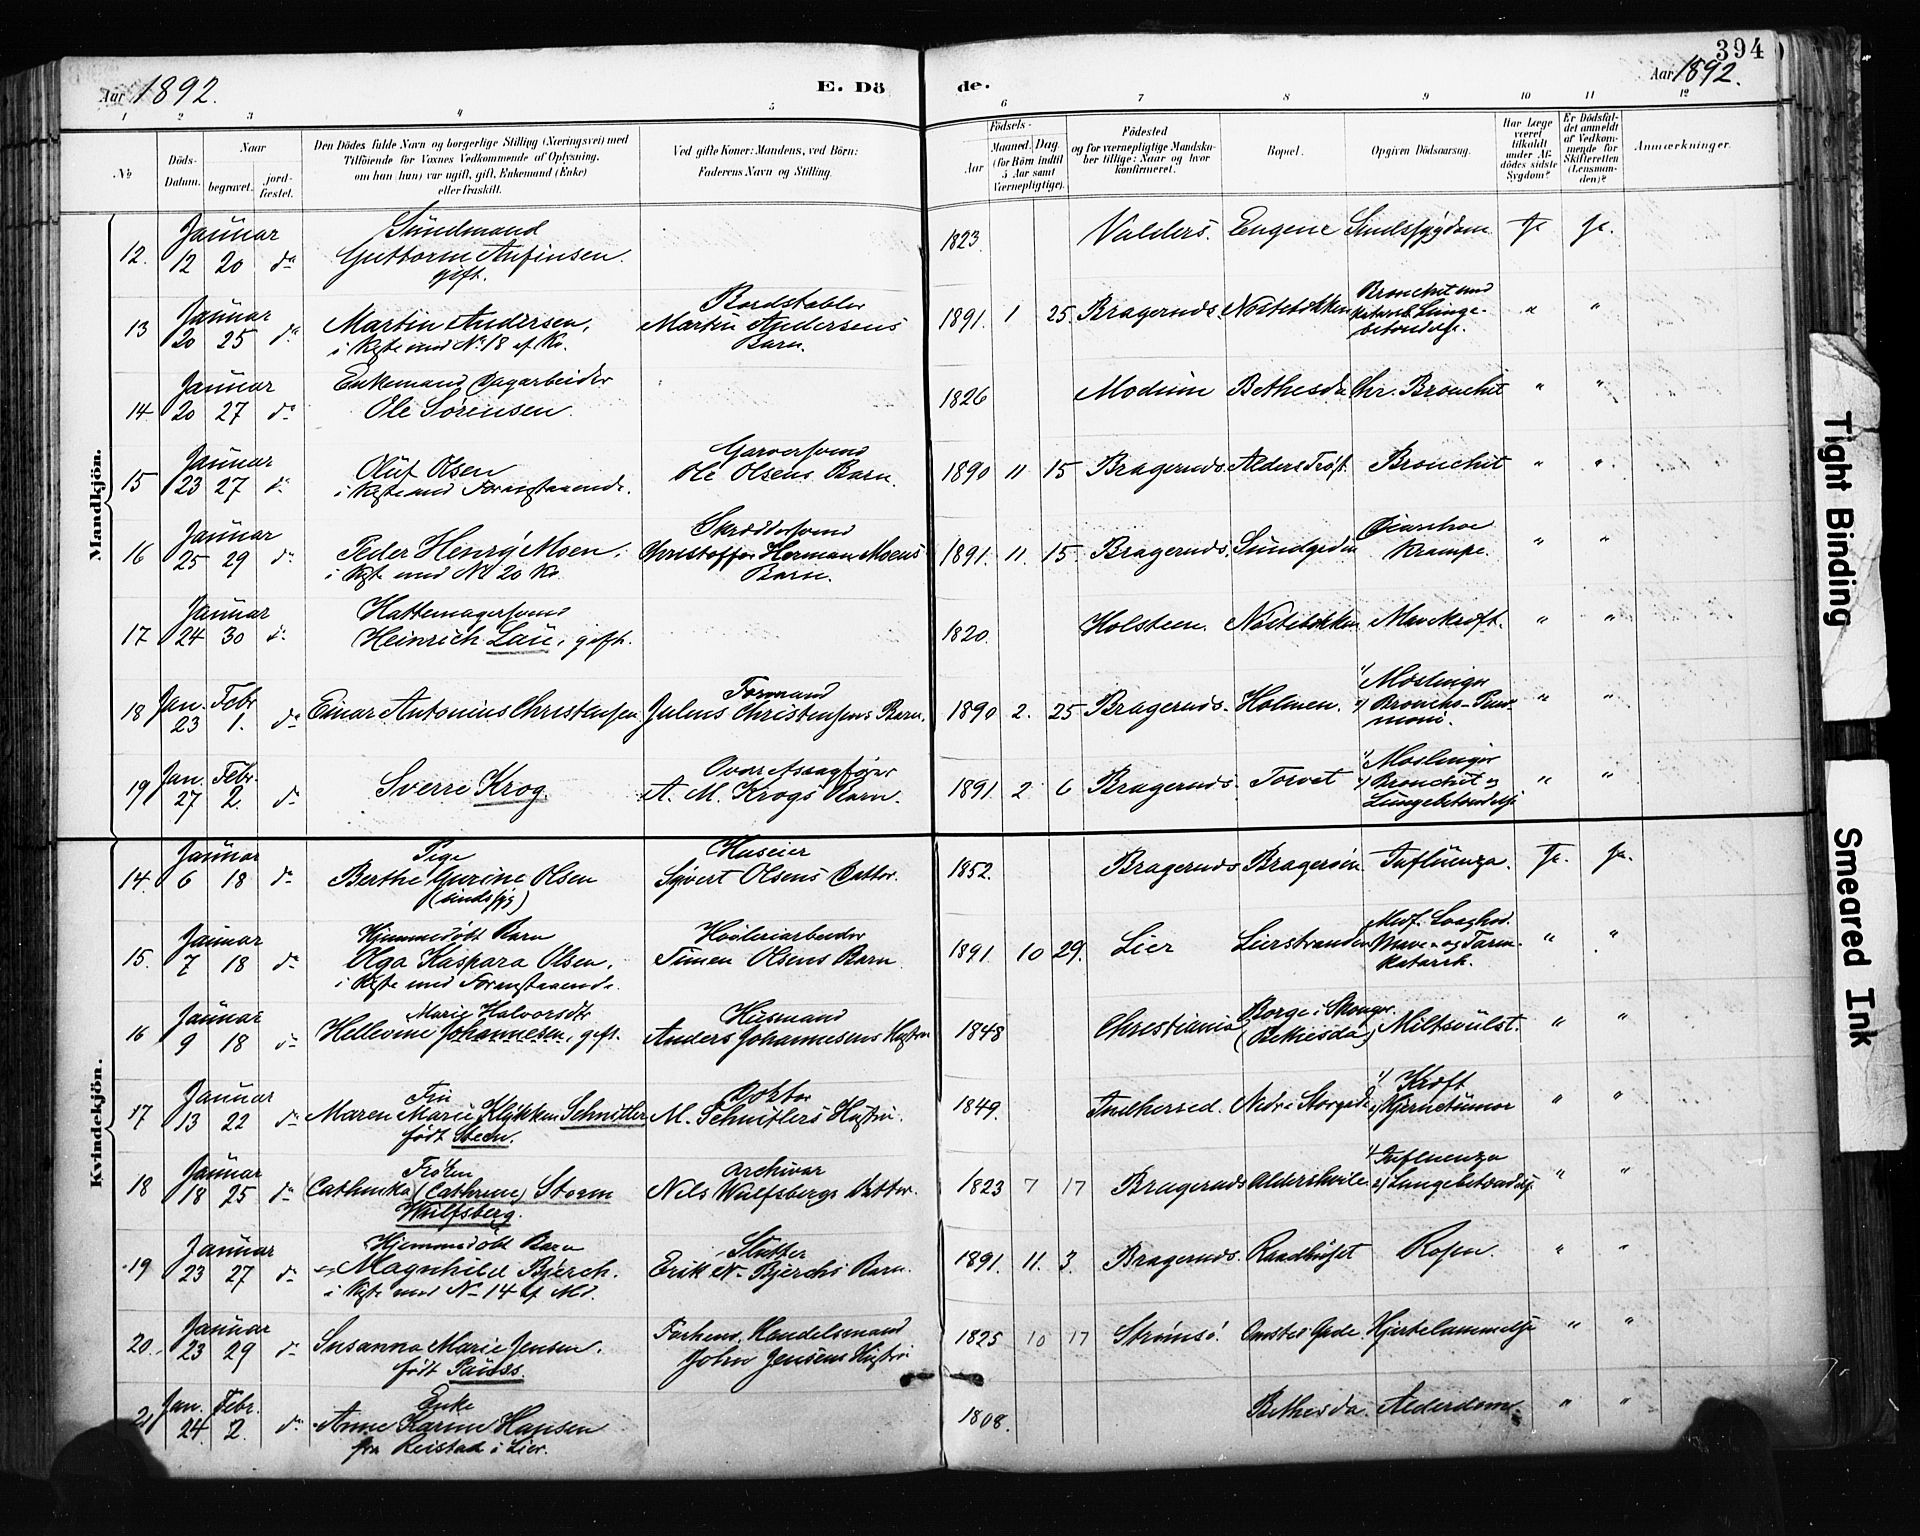 394
Aar 1892.
E. Dö de.
Aar 1892.
1 2 3 4 5 6 7 8 9 10 11 12
No
Döds-Datum.
Naar begravet. jordfæstet.
Den Dödes fulde Navn og borgerlige Stilling (Næringsvei) med
Tilföiende for Voxnes Vedkommende af Oplysning,
om han (hun) var ugift, gift, Enkemand (Enke)
eller fraskilt.
Ved gifte Koner: Mandens, ved Börn:
Faderens Navn og Stilling.
Födsels-
Aar Maaned. Dag.
(for Börn indtil
5 Aar samt
Værnepligtige).
Födested
og for værnepligtige Mandskaber tillige: Naar og hvor
konfirmeret.
Bopæl.
Opgiven Dödsaarsag.
Har Læge været tilkaldt under Afdödes sidste Sygdom?
Er Dödsfaldet anmeldt af Vedkommende for Skifteretten (Lensmanden)?
Anmærkninger.
Mandkjön.
12. Januar 12 20 do Sündmand Guttorm Anfinsen. gift. 1823. Valders. Eugene Sindssygdom Ja Ja.
13 Januar 20 25 do Martin Andersen, i Kiste med No 18 af Ko. Bordstabler Martin Andersens Barn. 1891. 1 25. Bragernæs. Nøstebakken Bronchit med Lungebetændelse. " "
14. Januar 20 27 do Enkemand Dagarbeider Ole Sørensen. 1826 Modum Bethesda Chr. Bronchit " "
15 Januar 23 27 do Oluf Olsen i Kiste med Foranstaaende. Garversvend Ole Olsens Barn. 1890 11 15 Bragernæs. Alders Trøst. Bronchit " "
16 Januar 25 29 do Peder Henry Moen, i Kiste med No 20 Ko. Skræddersvend Christoffer Herman Moens Barn. 1891. 11. 15. Bragernæs. Sundgaden Diarrhoe Krampe. " "
17 Januar 24 30 do Hattemagersvend Heinrich Lau, gift. 1820. Holsteen. Nøstebakken Mavekræft. " "
18 Jan. 23 Febr. 1. do Einar Antonius Christensen Formand Julius Christensens Barn. 1890 2. 25 Bragernæs. Holmen. 1) Meslinger 2) Broncho-Pneumoni. " "
19 Jan. 27 Febr. 2 do Sverre Krog. Overretssagfører A. M. Krogs Barn. 1891. 2 6 Bragernæs. Torvet 1) Meslinger 2) Bronchit og Lungebetændelse " "
Kvindekjön.
14. Januar 6 18 do Pige Berthe Gurine Olsen (sindssyg) Huseier Syvert Olsens Datter. 1852. Bragernæs Bragerøen Influenza. Ja. Ja.
15. Januar 7 18 do Hjemmedøbt Barn Olga Kaspara Olsen, i Kiste med Foranstaaende. Høvleriarbeider Timen Olsens Barn. 1891. 10 29. Lier Lierstranden Medf. Svaghed. Mave- og Tarmkatarrh. " "
16 Januar 9 18 do Marie Halvorsdtr Hellevine Johannesen, gift. Husmand Anders Johannesens Hustru 1848 Christiania Borge i Skoger. (Bethesda) Miltsvulst. " "
17 Januar 13 22 do Fru Maren Marie Kløkken Schnitler født Steen. Doktor M. Schnitlers Hustru. 1849. Indherred. Nedre Storgade 1) Kræft 2) Hjernetumor " "
18 Januar 18 25 do Frøken Cathinka (Cathrine) Storm Wulfsberg. Archivar Nils Wulfsbergs Datter. 1823 7 17 Bragernæs Aldershvile 1) Influenza 2) Lungebetændelse " "
19 Januar 23 27 do Hjemmedøbt Barn Magnhild Bjerch. i Kiste med No 14 af Md. Slutter Erik N. Bjerchs Barn. 1891. 11. 3. Bragernæs. Raadhuset Rosen. " "
20. Januar 23 29 do Susanna Marie Jensen. født Pauss. Forhenv. Handelsmand John Jensens Hustru 1825 10 17 Strømsø. Gade. Hjertelammelse " "
21 Jan. 24. Febr. 2. do Enke Anne Karine Hansen fra Reistad i Lier. 1808. Bethesda. Alderdom " "
Tight Binding
Smeared Ink